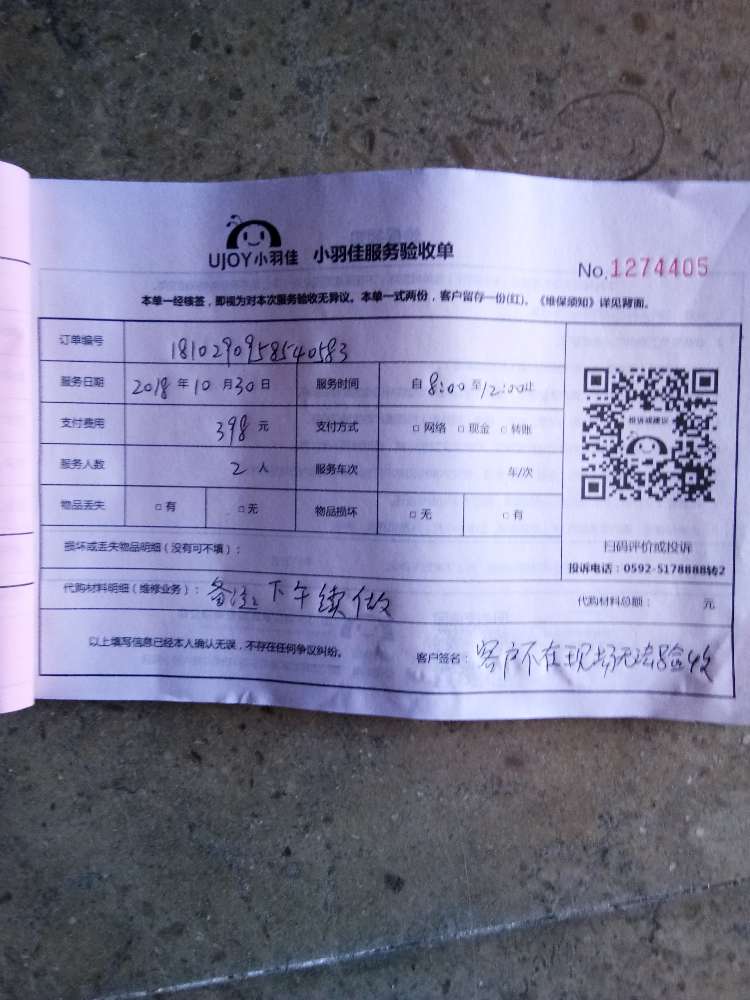 UJOY小羽佳 小羽佳服务验收单
No.1274405
本单一经核签，即视为对本次服务验收无异议。本单一式两份，客户留存一份(红)。《维保须知》详见背面。
订单编号 1810290958540583
服务日期 2018 年 10 月 30 日 服务时间 自 8:00 至 12:00 止
支付费用 398 元 支付方式 □ 网络 □ 现金 □ 转账
服务人数 2 人 服务车次 车/次
物品丢失 □ 有 □ 无 物品损坏 □ 无 □ 有
投诉或建议
扫码评价或投诉
投诉电话：0592-5178888转2
损坏或丢失物品明细（没有可不填）：
代购材料明细（维修业务）： 备注：下午续做 代购材料总额： 元
以上填写信息已经本人确认无误，不存在任何争议纠纷。 客户签名： 客户不在现场无法验收